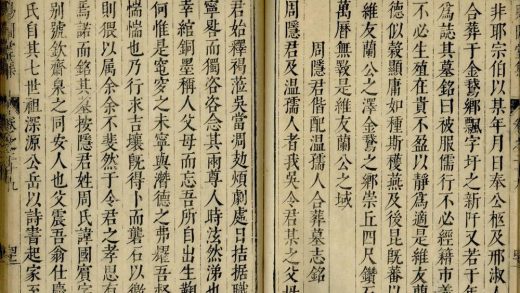 非耶宗伯以某年月日奉公柩及邢淑人
合葬于金鵞鄉飄字圩之新阡又若干年
為誌其墓銘曰被服儒行不必經籍市義
不必生殖在貴不盈以靜為適是維友蘭
德似穀顯庸如種斯穫燕及後昆旣蕃以
維友蘭公之澤金鵞之鄉崇丘四尺鑽石
萬曆無斁是維友蘭公之域
周隱君偕配溫孺人合葬墓志銘
周隱君及溫孺人者我吳令君某之父母
君始釋褐涖吳當凋劫煩劇處日拮据職
寧晷而獨咨咨念其兩尊人時泫然涕也
幸綰銅墨稱人父母而忘吾所自出生鞠
何惟是窀穸之未寧與潛德之弗耀吾
惴惴也乃行求吉壤旣得卜而礱石以徵
則猥以属余余不斐然于令君之孝思有
焉諾而銘其墓按隱君姓周氏諱國賓字
別號欽齋泉之同安人也父震吾翁仕
氏自其七世祖深源公岳以詩書起家至
卷之十九